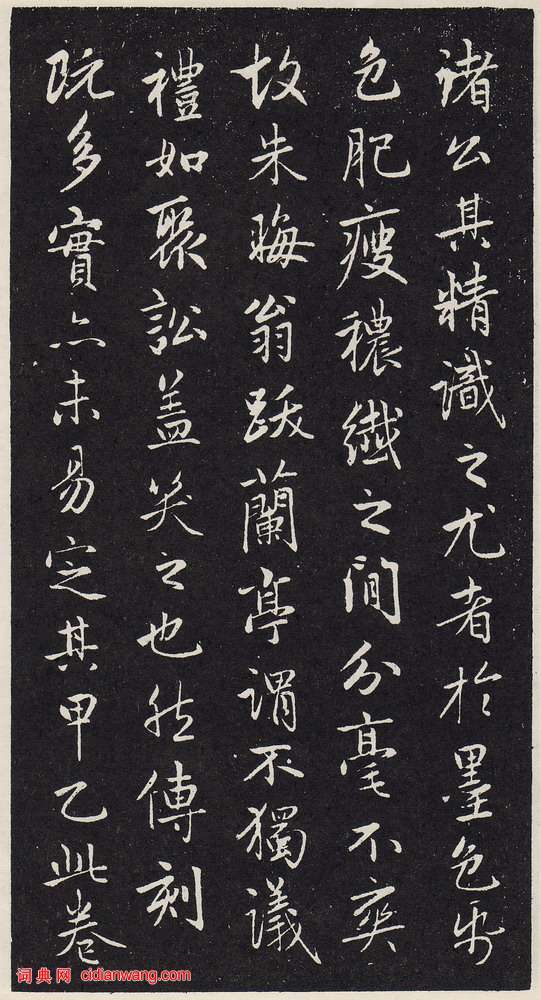 诸公其精識之尤者於墨色紙
色肥瘦穠纖之間分毫不爽
故朱晦翁跋蘭亭謂不獨議
禮如聚訟盖笑之也然傳刻
既多實亦未易定其甲乙此卷
词典网 cidianwang.com